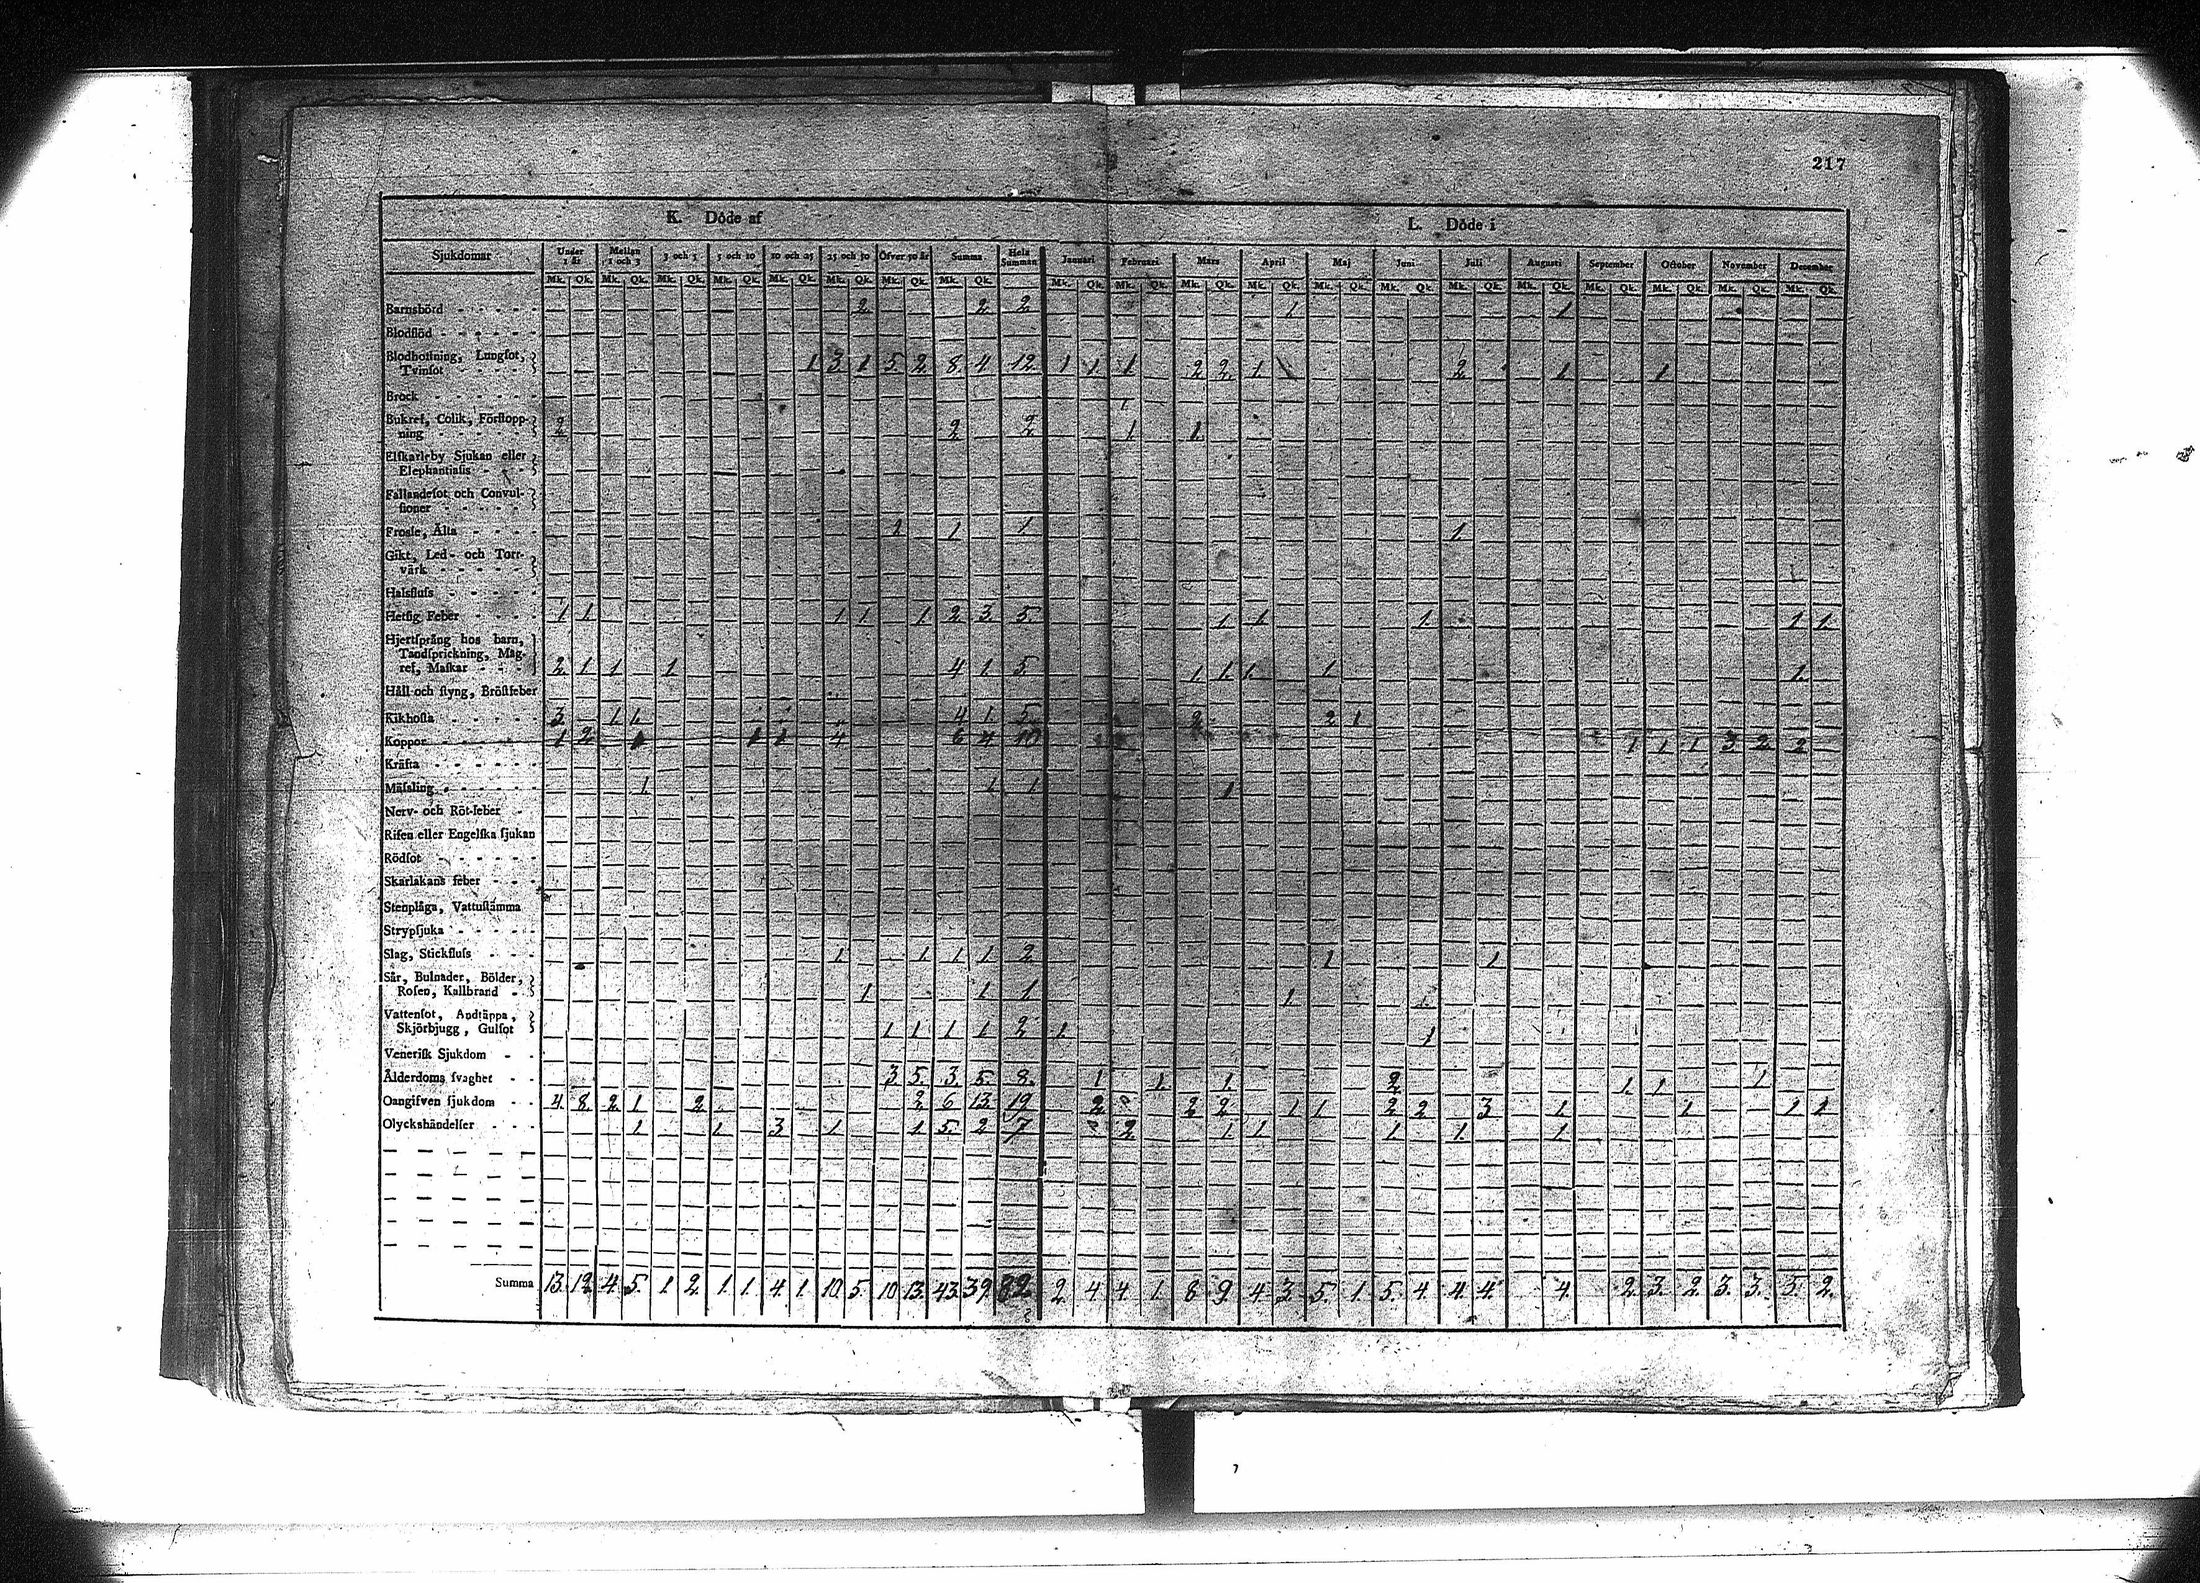 217
K. Döde af L. Döde i
Sjukdomar Under 1 år Mellan 1 och 3 3 och 5 5 och 10 10 och 25 25 och 50 Öfver 50 år Summa Hela Summan Januari Februari Mars April Maj Juni Juli Augusti September October November December
Mk. Qk. Mk. Qk. Mk. Qk. Mk. Qk. Mk. Qk. Mk. Qk. Mk. Qk. Mk. Qk. Mk. Qk. Mk. Qk. Mk. Qk. Mk. Qk. Mk. Qk. Mk. Qk. Mk. Qk. Mk. Qk. Mk. Qk. Mk. Qk. Mk. Qk. Mk. Qk.
Barnsbörd 2 2 2 1 1
Blodflöd
Blodhostning, Lungsot,
Tvinsot 1 3 1 5 2 8 4 12 1 1 1 2 2 1 2 1 1
Brock
Bukref, Colik, Förstopp-
ning 2 2 2 1 1
Elfkarleby Sjukan eller
Elephantiasis
Fallandesot och Convul-
sioner
Frossa, Älta 1 1 1
Gikt, Led- och Torr-
värk
Halsfluss
Hetsig Feber 1 1 1 1 1 2 3 5 1 1 1 1 1
Hjertsprång hos barn,
Tandsprickning, Mag-
ref, Maskar 2 1 1 1 4 1 5 1 1 1 1 1
Håll och styng, Bröstfeber
Kikhosta 3 1 1 4 1 5 2 2 1
Koppor 1 2 1 1 1 4 6 4 10 1 1 1 3 2 2
Kräfta
Mässling 1 1 1 1
Nerv- och Röt-feber
Risen eller Engelska sjukan
Rödsot
Skarlakans feber
Stenplåga, Vattustämma
Strypsjuka
Slag, Stickfluss 1 1 1 1 2 1 1
Sår, Bulnader, Bölder,
Rosen, Kallbrand 1 1 1 1
Vattensot, Andtäppa,
Skjörbjugg, Gulsot 1 1 1 1 2 1 1
Venerisk Sjukdom
Ålderdoms svaghet 3 5 3 5 8 1 1 1 2 1 1 1
Oangifven sjukdom 4 8 2 1 2 2 6 13 19 2 2 2 1 1 2 2 3 1 1 1 1
Olyckshändelser 1 1 3 1 1 5 2 7 2 1 1 1 1 1
Summa 13 12 4 5 1 2 1 1 4 1 10 5 10 13 43 39 82 2 4 4 1 8 9 4 3 5 1 5 4 4 4 4 2 3 2 3 3 3 2